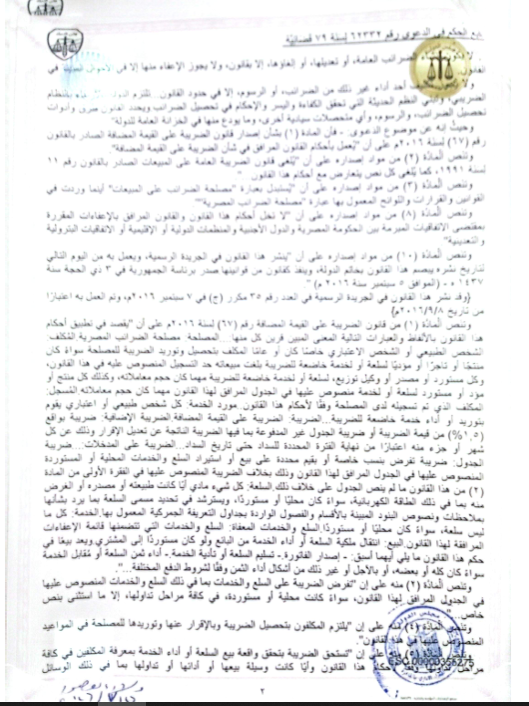 تابع الحكم في الدعوى رقم ٦٢٣٣٢ لسنة ٧٩ قضائية
الضرائب العامة، أو تعديلها، أو إلغاؤها، إلا بقانون، ولا يجوز الإعفاء منها إلا في الأحوال المبينة في
القانون. أحد أداء غير ذلك من الضرائب، أو الرسوم، إلا في حدود القانون.
الضريبي، وتبني النظم الحديثة التي تحقق الكفاءة واليسر والإحكام في تحصيل الضرائب ويحدد القانون طرق وأدوات
تحصيل الضرائب، والرسوم، وأي متحصلات سيادية أخرى، وما يودع منها في الخزانة العامة للدولة"
وحيث إنه عن موضوع الدعوى - فإن المادة (١) بشأن إصدار قانون الضريبة على القيمة المضافة الصادر بالقانون
رقم (٦٧) لسنة ٢٠١٦م على أن "يُعمل بأحكام القانون المرافق في شأن الضريبة على القيمة المضافة"
وتنص المادة (٢) من مواد إصداره على أن "يُلغى قانون الضريبة العامة على المبيعات الصادر بالقانون رقم ١١ لسنة
١٩٩١، كما يُلغى كل نص يتعارض مع أحكام هذا القانون"
وتنص المادة (٣) من مواد إصداره على أن "يُستبدل بعبارة "مصلحة الضرائب على المبيعات" أينما وردت في
القوانين والقرارات واللوائح المعمول بها عبارة "مصلحة الضرائب المصرية""
وتنص المادة (٨) من مواد إصداره على أن "لا تخل أحكام هذا القانون والقانون المرافق بالإعفاءات المقررة
بمقتضى الاتفاقيات المبرمة بين الحكومة المصرية والدول الأجنبية والمنظمات الدولية أو الإقليمية أو الاتفاقيات البترولية
والتعدينية"
وتنص المادة (١٠) من مواد إصداره على أن "ينشر هذا القانون في الجريدة الرسمية، ويعمل به من اليوم التالي
لتاريخ نشره يبصم هذا القانون بخاتم الدولة، وينفذ كقانون من قوانينها صدر برئاسة الجمهورية في ٣ ذي الحجة سنة
١٤٣٧ هـ - (الموافق ٥ سبتمبر سنة ٢٠١٦ م)"
{وقد نشر هذا القانون في الجريدة الرسمية في العدد رقم ٣٥ مكرر (ج) في ٧ سبتمبر ٢٠١٦م، وتم العمل به اعتبارًا
من تاريخ ٢٠١٦/٩/٨م}
وتنص المادة (١) من قانون الضريبة على القيمة المضافة رقم (٦٧) لسنة ٢٠١٦م على أن "يقصد في تطبيق أحكام
هذا القانون بالألفاظ والعبارات التالية المعنى المبين قرين كل منها:..المصلحة: مصلحة الضرائب المصرية.المُكلف:
الشخص الطبيعي أو الشخص الاعتباري خاصًا كان أو عامًا المكلف بتحصيل وتوريد الضريبة للمصلحة سواة كان
منتجًا أو تاجرًا أو مؤديًا لسلعة أو لخدمة خاضعة للضريبة بلغت مبيعاته حد التسجيل المنصوص عليه في هذا القانون،
وكل مستورد أو مصدر أو وكيل توزيع، لسلعة أو لخدمة خاضعة للضريبة مهما كان حجم معاملاته، وكذلك كل منتج أو
مؤد أو مستورد لسلعة أو لخدمة منصوص عليها في الجدول المرافق لهذا القانون مهما كان حجم معاملاته.المُسجل:
المكلف الذي تم تسجيله لدى المصلحة وفقًا لأحكام هذا القانون.مورد الخدمة: كل شخص طبيعي أو اعتباري يقوم
بتوريد أو أداء خدمة خاضعة للضريبة...الضريبة: الضريبة على القيمة المضافة.الضريبة الإضافية: ضريبة بواقع
(١,٥%) من قيمة الضريبة أو ضريبة الجدول غير المدفوعة بما فيها الضريبة الناتجة عن تعديل الإقرار وذلك عن كل
شهر أو جزء منه اعتبارًا من نهاية الفترة المحددة للسداد حتى تاريخ السداد...الضريبة على المدخلات:.. ضريبة
الجدول: ضريبة تفرض بنسب خاصة أو بقيم محددة على بيع أو استيراد السلع والخدمات المحلية أو المستوردة
المنصوص عليها في الجدول المرافق لهذا القانون وذلك بخلاف الضريبة المنصوص عليها في الفقرة الأولى من المادة
(٢) من هذا القانون ما لم ينص الجدول على خلاف ذلك.السلعة: كل شيء مادي أيًا كانت طبيعته أو مصدره أو الغرض
منه بما في ذلك الطاقة الكهربائية، سواة كان محليًا أو مستوردًا، ويسترشد في تحديد مسمى السلعة بما يرد بشأنها
بملاحظات ونصوص البنود المبينة بالأقسام والفصول الواردة بجداول التعريفة الجمركية المعمول بها.الخدمة: كل ما
ليس سلعة، سواة كان محليًا أو مستوردًا.السلع والخدمات المعفاة: السلع والخدمات التي تتضمنها قائمة الإعفاءات
المرافقة لهذا القانون.البيع: انتقال ملكية السلعة أو أداء الخدمة من البائع ولو كان مستوردًا إلى المشتري.ويعد بيعًا في
حكم هذا القانون ما يلي أيهما أسبق: - إصدار الفاتورة.- تسليم السلعة أو تأدية الخدمة.- أداء ثمن السلعة أو مُقابل الخدمة
سواة كان كله أو بعضه أو بالأجل أو غير ذلك من أشكال أداء الثمن وفقًا لشروط الدفع المختلفة...."
وتنص المادة (٢) منه على إن "تفرض الضريبة على السلع والخدمات بما في ذلك السلع والخدمات المنصوص عليها
في الجدول المرافق لهذا القانون، سواة كانت محلية أو مستوردة، في كافة مراحل تداولها، إلا ما استثنى بنص
خاص."
وتنص المادة (٤) منه على إن "يلتزم المكلفون بتحصيل الضريبة وبالإقرار عنها وتوريدها للمصلحة في المواعيد
المنصوص عليها في هذا القانون"
وتنص المادة (٥) منه على إن "تستحق الضريبة بتحقق واقعة بيع السلعة أو أداء الخدمة بمعرفة المكلفين في كافة
مراحل تداولها وفقًا لأحكام هذا القانون وأيًا كانت وسيلة بيعها أو أدائها أو تداولها بما في ذلك الوسائل
ESC 00000358275
٢